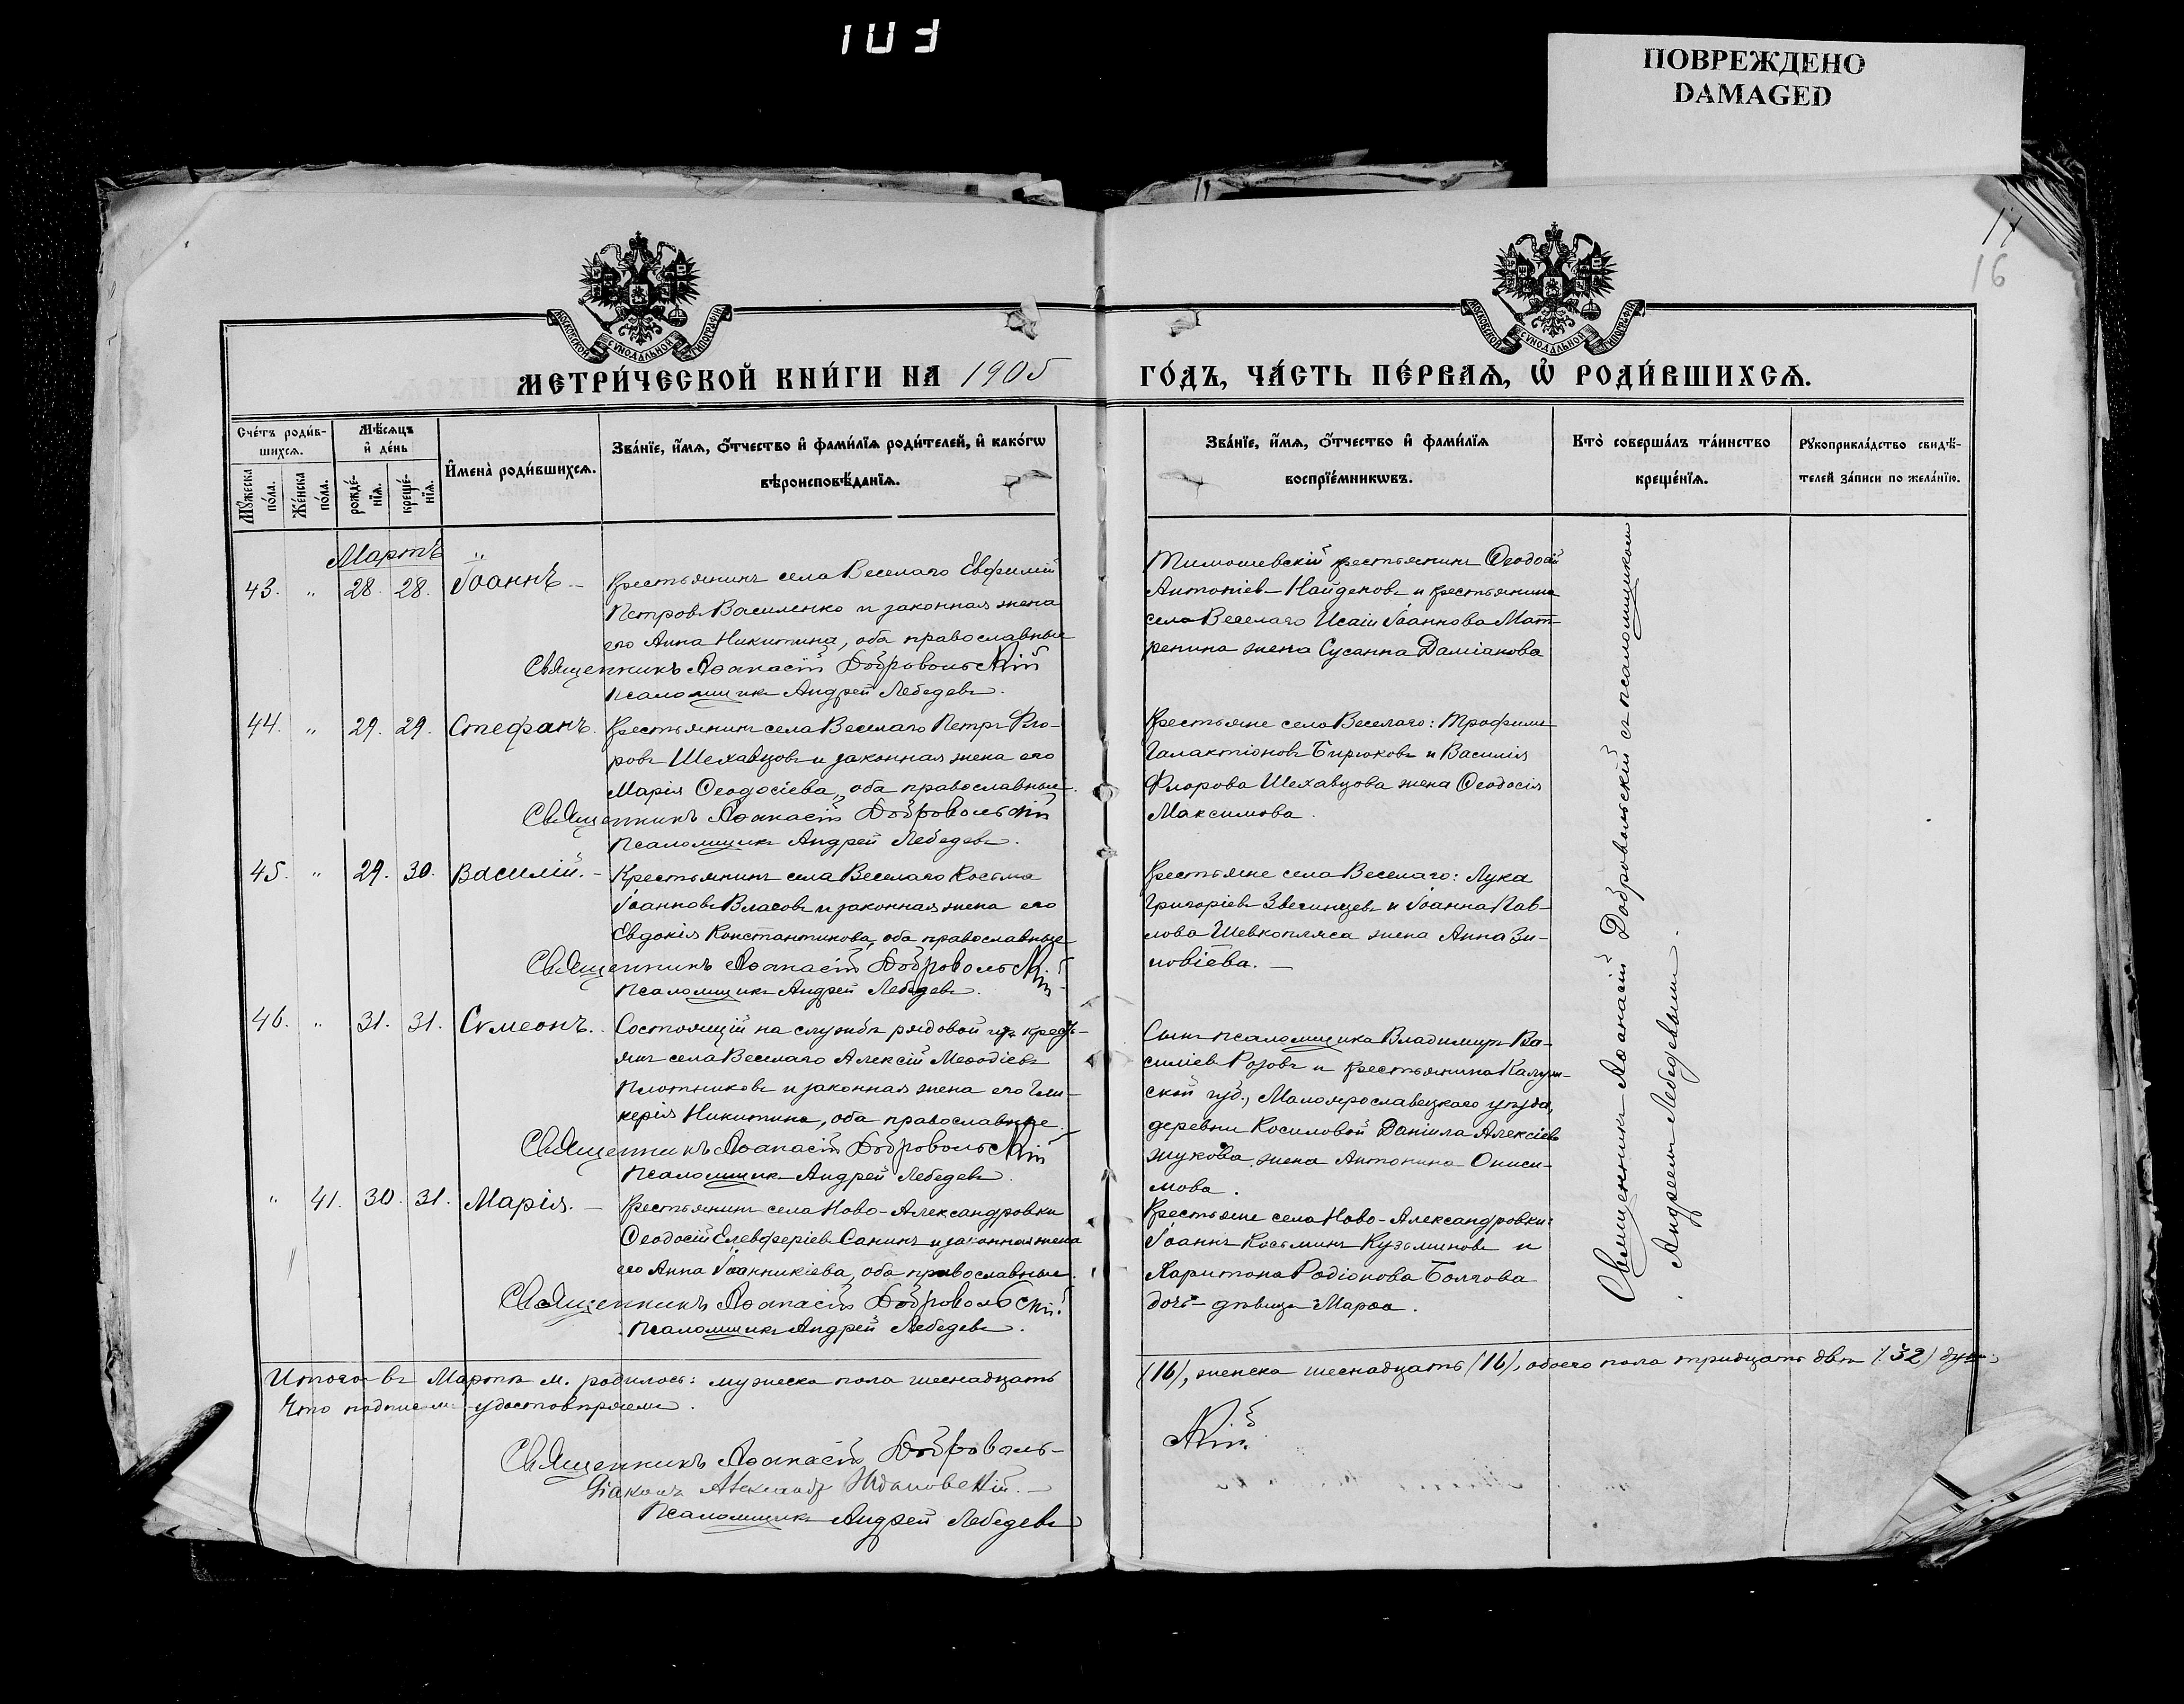 ПОВРЕЖДЕНО
DAMAGED
17
16
МОСКОВСКОЙ СѴНОДАЛЬНОЙ ТИПОГРАФІИ
МОСКОВСКОЙ СѴНОДАЛЬНОЙ ТИПОГРАФІИ
МЕТРИ́ЧЕСКОЙ КНИ́ГИ НА 1905
ГО́ДЪ, ЧА́СТЬ ПЕ́РВАѦ, Ѡ҆ РОДИ́ВШИХСѦ.
Сче́тъ роди́в-
шихсѧ.
Мꙋ́жеска по́ла.
Же́нска по́ла.
Мѣ́сѧцъ
и҆ де́нь
рожде́-
нїѧ.
креще́-
нїѧ.
И҆мена̀ роди́вшихсѧ.
Зва́нїе, и҆́мѧ, ѻ҆́тчество и҆ фами́лїѧ роди́телей, и҆ како́гѡ
вѣроисповѣ́данїѧ.
Зва́нїе, и҆́мѧ, ѻ҆́тчество и҆ фами́лїѧ
воспрїе́мникѡвъ.
Кто̀ соверша́лъ та́инство
креще́нїѧ.
Рꙋкоприкла́дство свидѣ́-
телей за́писи по жела́нїю.
Мартъ
43. " 28. 28. Іоаннъ. –
Крестьянинъ села Веселаго Евфимій
Петровъ Василенко и законная жена
его Анна Никитина, оба православные
Священникъ Аѳанасій Добровольскій
Псаломщикъ Андрей Лебедевъ.
Тимошевскій крестьянинъ Ѳеодосій
Антоніевъ Найденовъ и крестьянина
села Веселаго Исаіи Іоаннова Мат-
ренина жена Сусанна Даміанова
44. " 29. 29. Стефанъ.
Крестьянинъ села Веселаго Петръ Фло-
ровъ Шехавцовъ и законная жена его
Марія Ѳеодосіева, оба православные.
Священникъ Аѳанасій Добровольскій
Псаломщикъ Андрей Лебедевъ.
Крестьяне села Веселаго: Трофимъ
Галактіоновъ Бирюковъ и Василія
Флорова Шехавцова жена Ѳеодосія
Максимова.
45. " 29. 30. Василій. –
Крестьянинъ села Веселаго Косьма
Іоанновъ Власовъ и законная жена его
Евдокія Константинова, оба православные
Священникъ Аѳанасій Добровольскій
Псаломщикъ Андрей Лебедевъ.
Крестьяне села Веселаго: Лука
Григоріевъ Звегинцевъ и Іоанна Пав-
лова Шевкопляса жена Анна Зи-
новіева. –
46. " 31. 31. Сѵмеонъ.
Состоящій на службѣ рядовой изъ кресть-
янъ села Веселаго Алексій Меѳодіевъ
Плотниковъ и законная жена его Гли-
керія Никитина, оба православные.
Священникъ Аѳанасій Добровольскій
Псаломщикъ Андрей Лебедевъ.
Сынъ псаломщика Владимиръ Ва-
силіевъ Розовъ и крестьянина Калуж-
ской губ., Малоярославецкаго уѣзда,
деревни Косиловой Даніила Алексіева
Жукова жена Антонина Ониси-
мова.
" 41. 30. 31. Марія. –
Крестьянинъ села Ново-Александровки
Ѳеодосій Елевферіевъ Санинъ и законная жена
его Анна Іоанникіева, оба православные.
Священникъ Аѳанасій Добровольскій.
Псаломщикъ Андрей Лебедевъ.
Крестьяне села Ново-Александровки:
Іоаннъ Косьминъ Кузьминовъ и
Харитона Родіонова Болгова
дочь – дѣвица Марѳа.
Священникъ Аѳанасій Добровольскій съ псаломщикомъ
Андреемъ Лебедевымъ.
Итого въ Мартѣ м. родилось: мужеска пола шеснадцать
(16), женска шеснадцать (16), обоего пола тридцать двѣ (32) души,
Что подписями удостовѣряемъ.
Священникъ Аѳанасій Доброволь-
скій.
Діаконъ Александръ Ждановскій. –
Псаломщикъ Андрей Лебедевъ